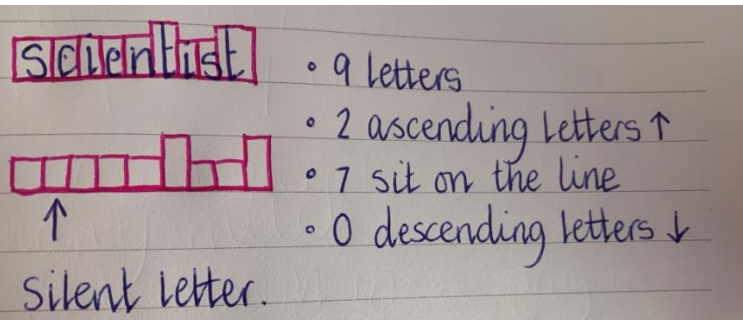 scientist
• 9 letters
• 2 ascending letters ↑
• 7 sit on the line
• 0 descending letters ↓
↑
silent letter.